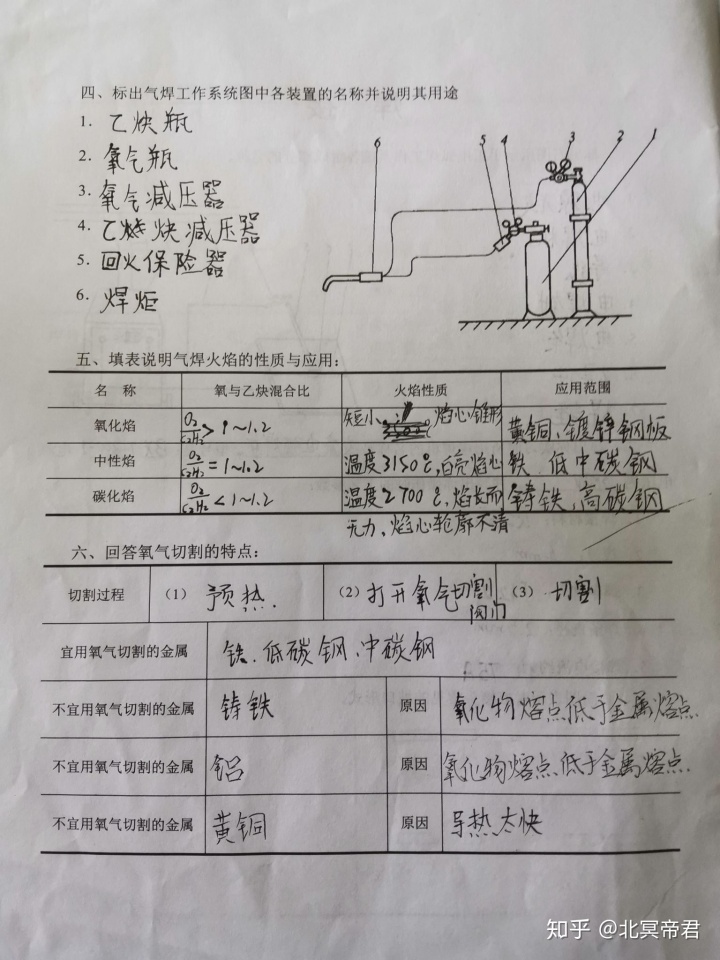 四、标出气焊工作系统图中各装置的名称并说明其用途
1. 乙炔瓶
2. 氧气瓶
3. 氧气减压器
4. 乙炔减压器
5. 回火保险器
6. 焊炬
6 5 4 3 2 1
五、填表说明气焊火焰的性质与应用:
名 称 氧与乙炔混合比 火焰性质 应用范围
氧化焰 O2/C2H2 > 1~1.2 短小 焰心锥形 黄铜、镀锌钢板
中性焰 O2/C2H2 = 1~1.2 温度3150℃,白亮焰心 铁、低中碳钢
碳化焰 O2/C2H2 < 1~1.2 温度2700℃,焰长而 铸铁,高碳钢
无力,焰心轮廓不清
六、回答氧气切割的特点:
切割过程 (1) 预热. (2) 打开氧气切割 (3) 切割
阀门
宜用氧气切割的金属 铁、低碳钢、中碳钢
不宜用氧气切割的金属 铸铁 原因 氧化物熔点低于金属熔点.
不宜用氧气切割的金属 铝 原因 氧化物熔点低于金属熔点.
不宜用氧气切割的金属 黄铜 原因 导热太快
知乎 @北冥帝君